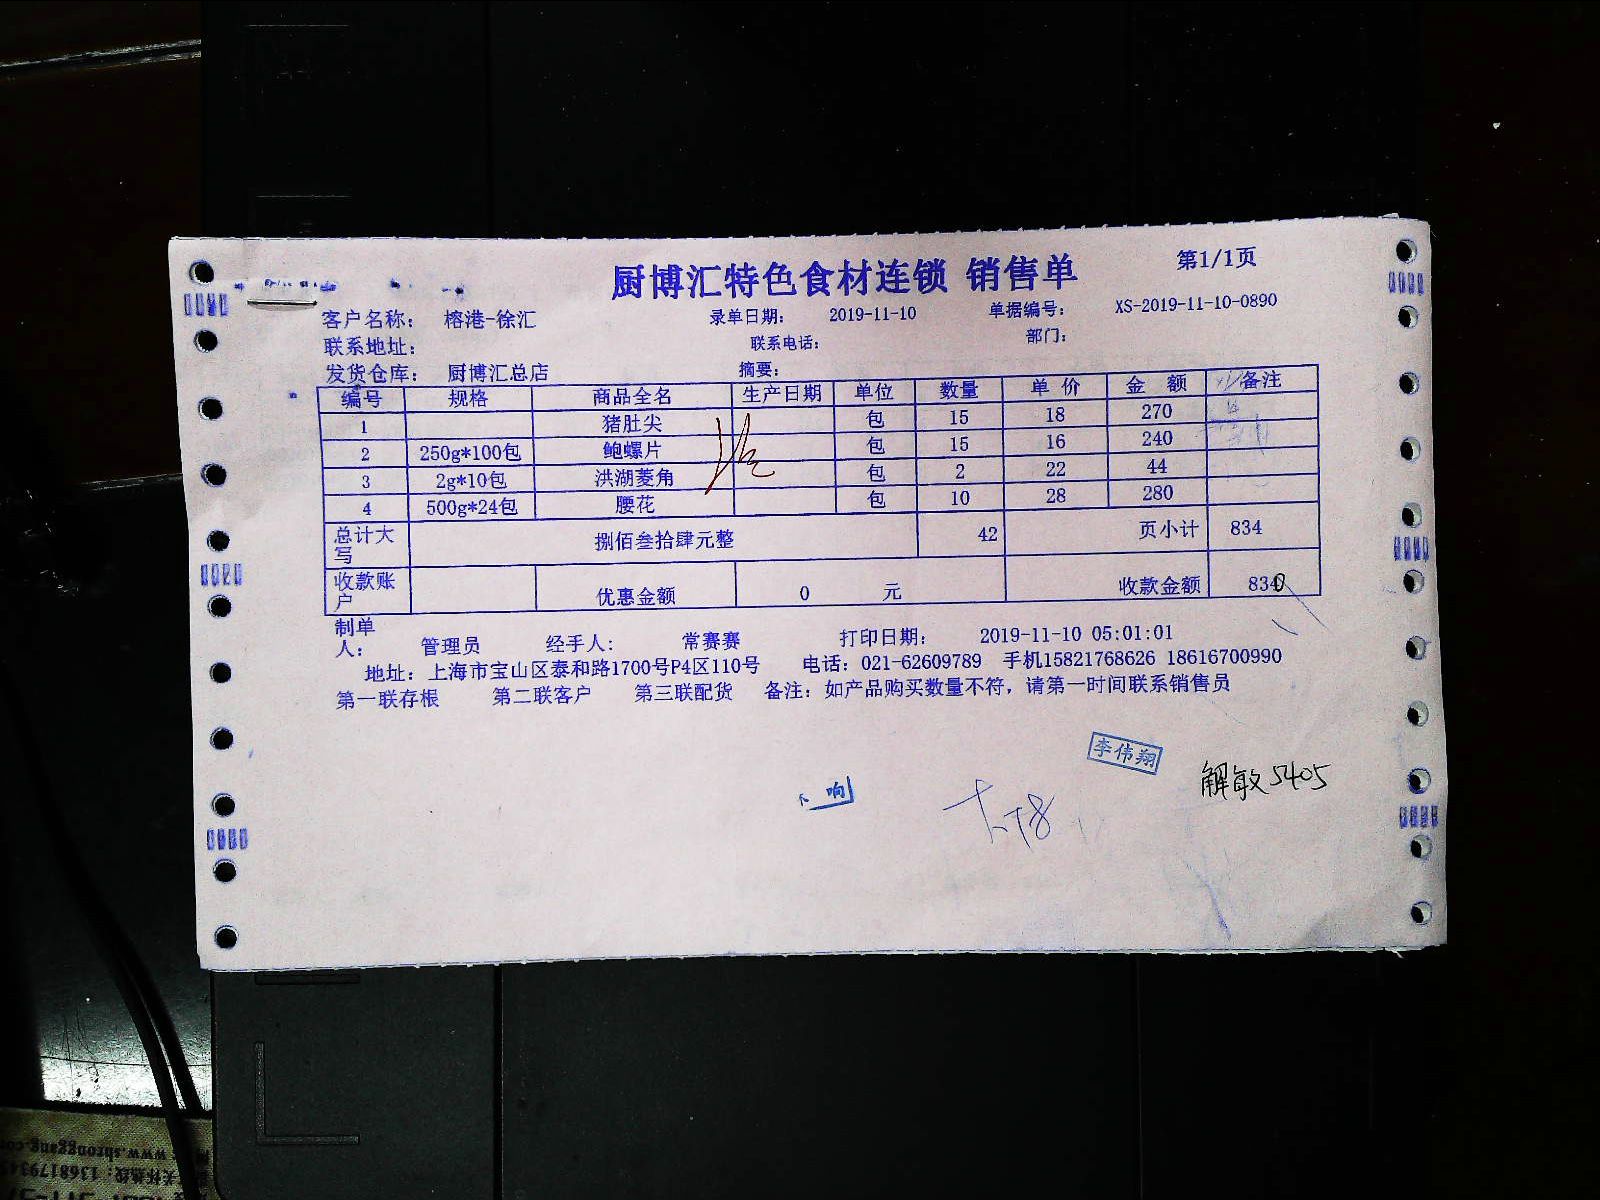 厨博汇特色食材连锁 销售单 第1/1页
客户名称: 榕港-徐汇 录单日期: 2019-11-10 单据编号: XS-2019-11-10-0890
联系地址: 联系电话: 部门:
发货仓库: 厨博汇总店 摘要:
编号 规格 商品全名 生产日期 单位 数量 单价 金额 备注
1 猪肚尖 包 15 18 270
2 250g*100包 鲍螺片 包 15 16 240
3 2g*10包 洪湖菱角 包 2 22 44
4 500g*24包 腰花 包 10 28 280
总计大写 捌佰叁拾肆元整 42 页小计 834
收款账户 优惠金额 0 元 收款金额 830
制单人: 管理员 经手人: 常赛赛 打印日期: 2019-11-10 05:01:01
地址: 上海市宝山区泰和路1700号P4区110号 电话: 021-62609789 手机15821768626 18616700990
第一联存根 第二联客户 第三联配货 备注: 如产品购买数量不符，请第一时间联系销售员
李伟翔
解敏5405
响